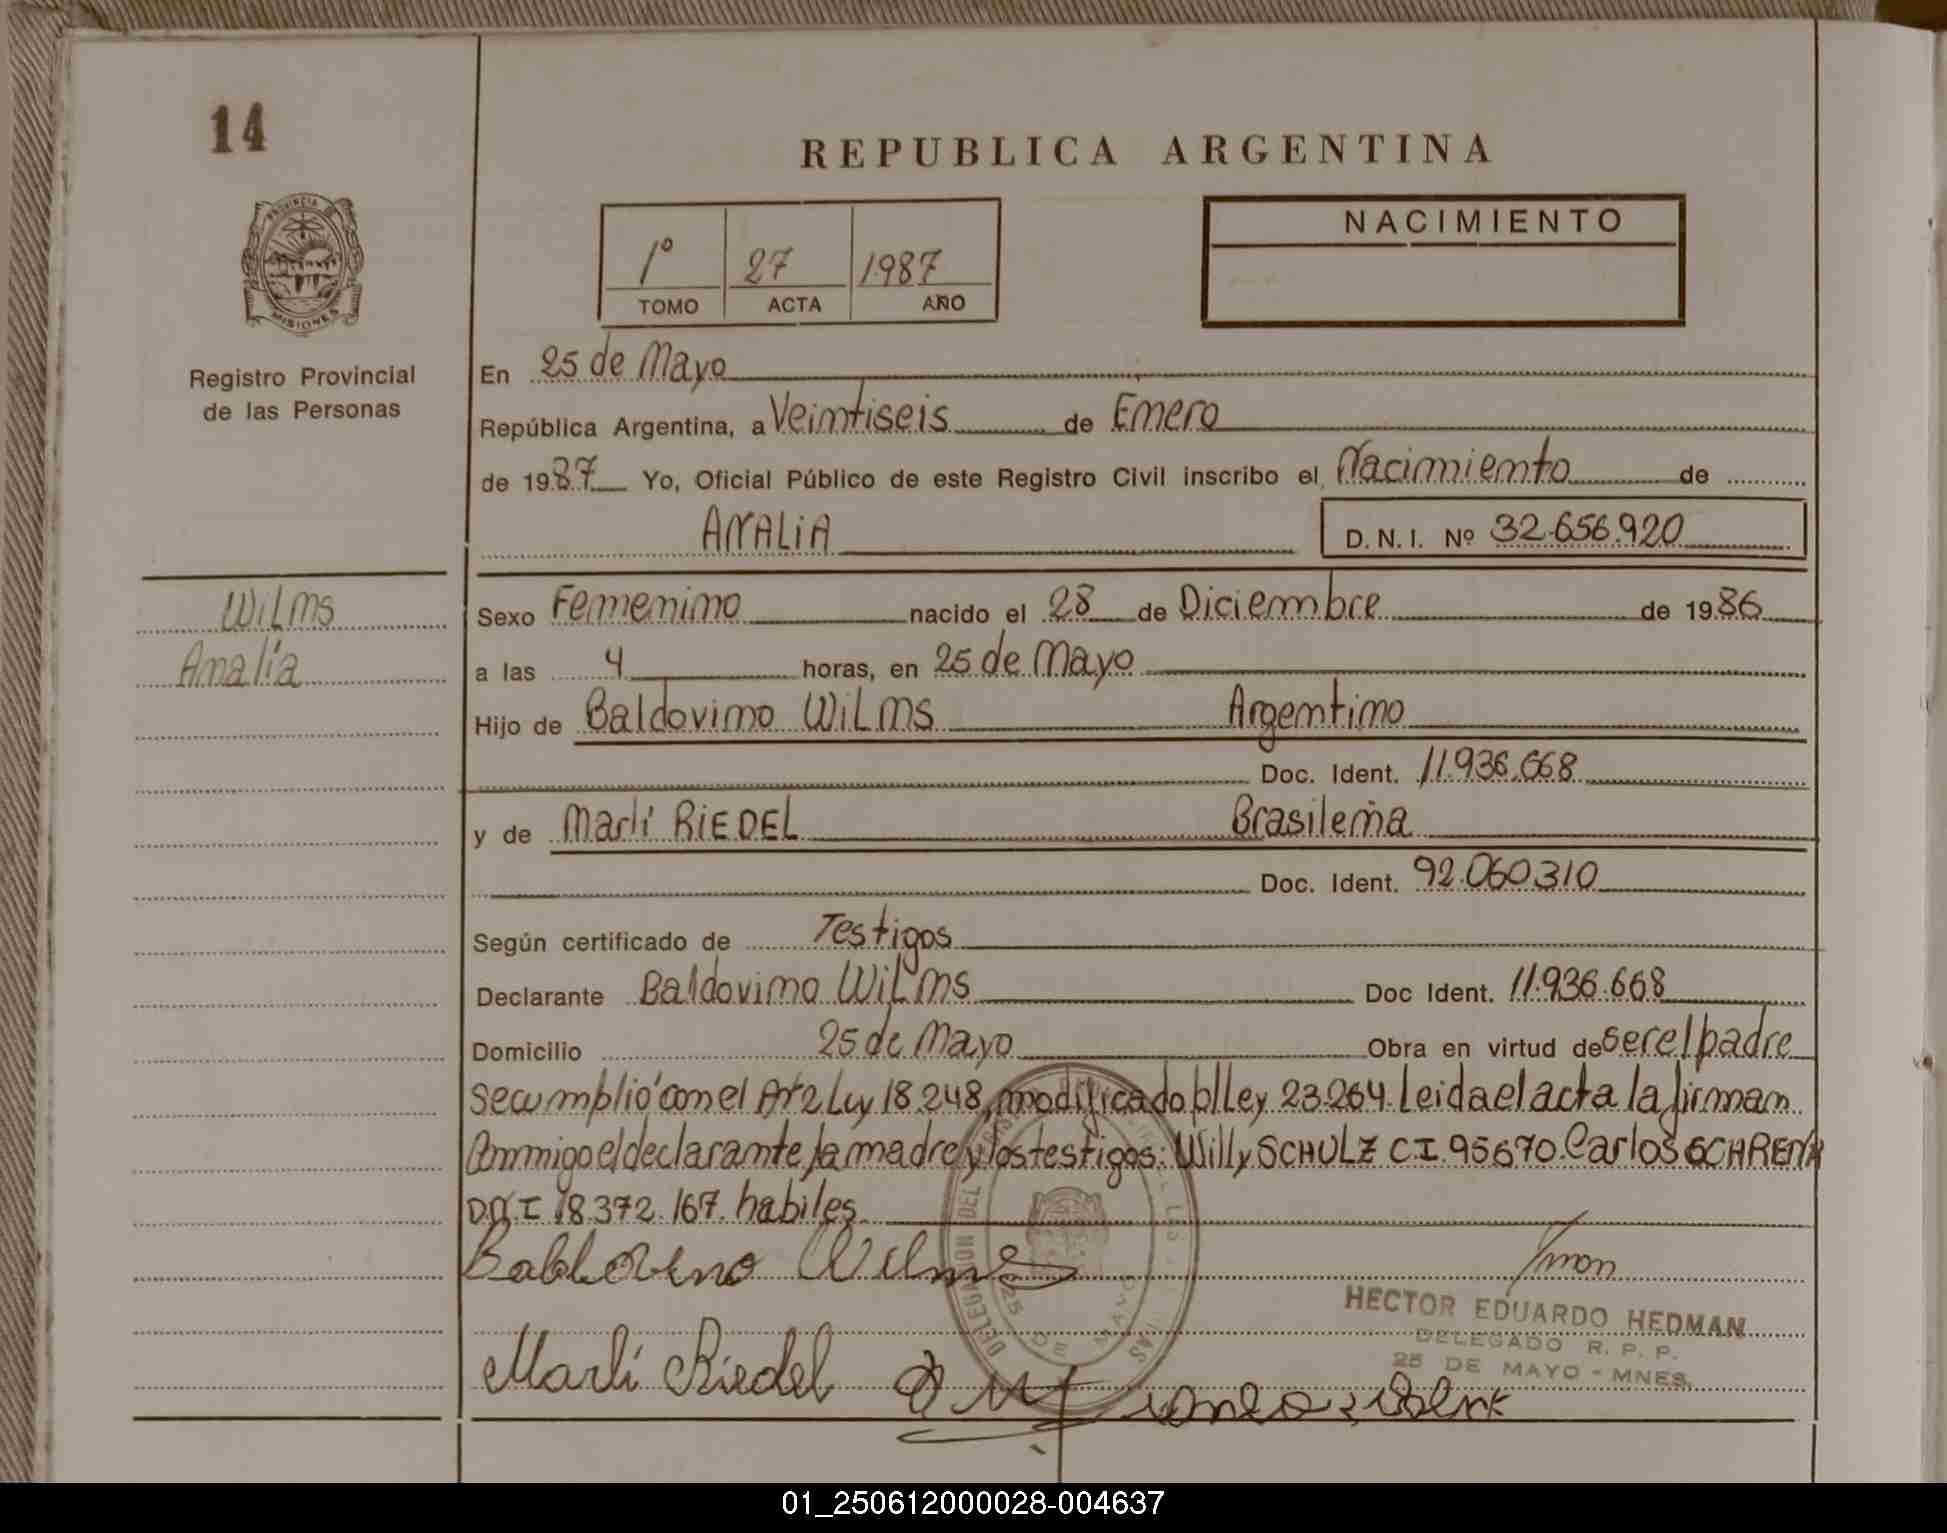 14
REPUBLICA ARGENTINA
PROVINCIA DE
MISIONES
Registro Provincial
de las Personas
1º 27 1987
TOMO ACTA AÑO
NACIMIENTO
En 25 de Mayo
República Argentina, a Veintiseis de Enero
de 1987 Yo, Oficial Público de este Registro Civil inscribo el Nacimiento de
ANALIA D.N.I. Nº 32.656.920
Wilms
Analía
Sexo Femenino nacido el 28 de Diciembre de 1986
a las 4 horas, en 25 de Mayo
Hijo de Baldovino WiLms Argentino
Doc. Ident. 11.936.668
y de Marlí RiEDEL Brasileña
Doc. Ident. 92.060.310
Según certificado de Testigos
Declarante Baldovino WiLms Doc Ident. 11.936.668
Domicilio 25 de Mayo Obra en virtud de ser el padre
Se cumplió con el Art 2 Ley 18.248, modificado p/ Ley 23.264. Leida el acta la firman
Conmigo el declarante, la madre y los testigos: Willy SCHULZ C.I. 95670. Carlos
DNI 18.372.167. habiles
Baldovino Wilms
HECTOR EDUARDO HEDMAN
DELEGADO R. P. P.
25 DE MAYO - MNES.
Marlí Riedel
DELEGACION DEL REGISTRO PROVINCIAL DE LAS PERSONAS
25 DE MAYO
01_250612000028-004637